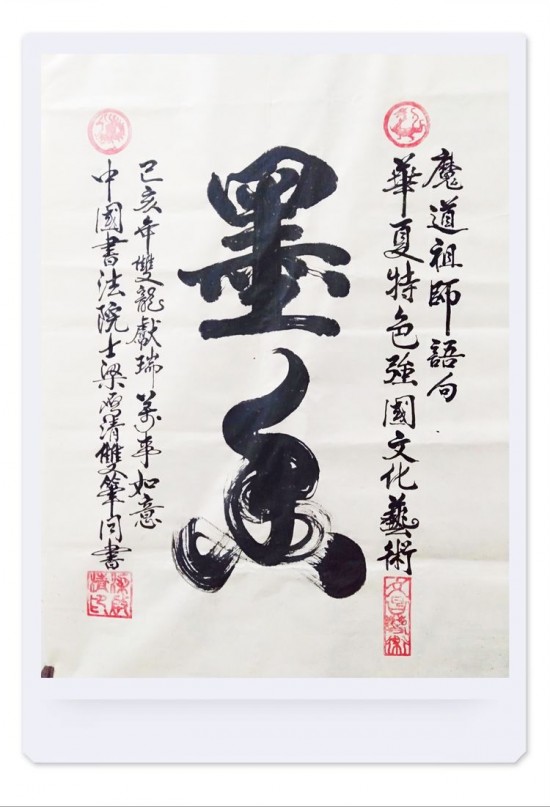 魔道祖師語句
華夏特色強國文化藝術
墨香
己亥年雙龍獻瑞萬事如意
中國書法院士梁啟清雙筆同書